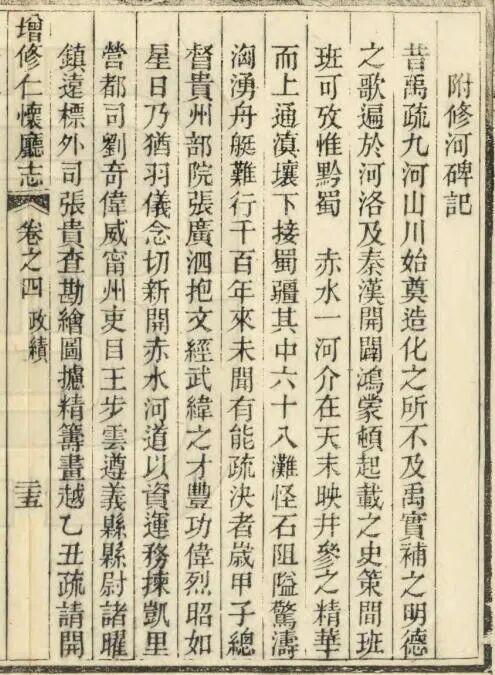 附修河碑記
昔禹疏九河山川始奠造化之所不及禹實補之明德
之歌遍於河洛及秦漢開闢鴻蒙頓起載之史策間班
班可攷惟黔蜀　赤水一河介在天末映井參之精華
而上通滇壤下接蜀疆其中六十八灘怪石阻隘驚濤
洶湧舟艇難行千百年來未聞有能疏決者歲甲子總
督貴州部院張廣泗抱文經武緯之才豐功偉烈昭如
星日乃猶羽儀念切新開赤水河道以資運務揀凱里
營都司劉奇偉威甯州吏目王步雲遵義縣縣尉諸曜
鎮遠標外司張貴查勘繪圖攄精籌畫越乙丑疏請開
增修仁懷廳志 卷之四 政績 三五